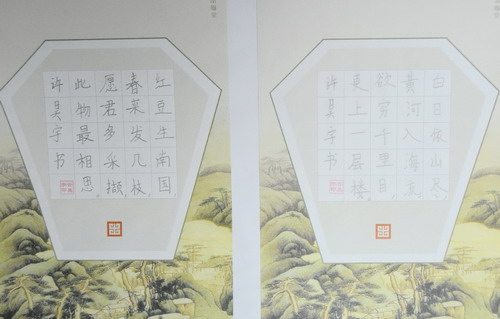 红豆生南国
春来发几枝
愿君多采撷
此物最相思
许昊宇书
白日依山尽
黄河入海流
欲穷千里目
更上一层楼
许昊宇书